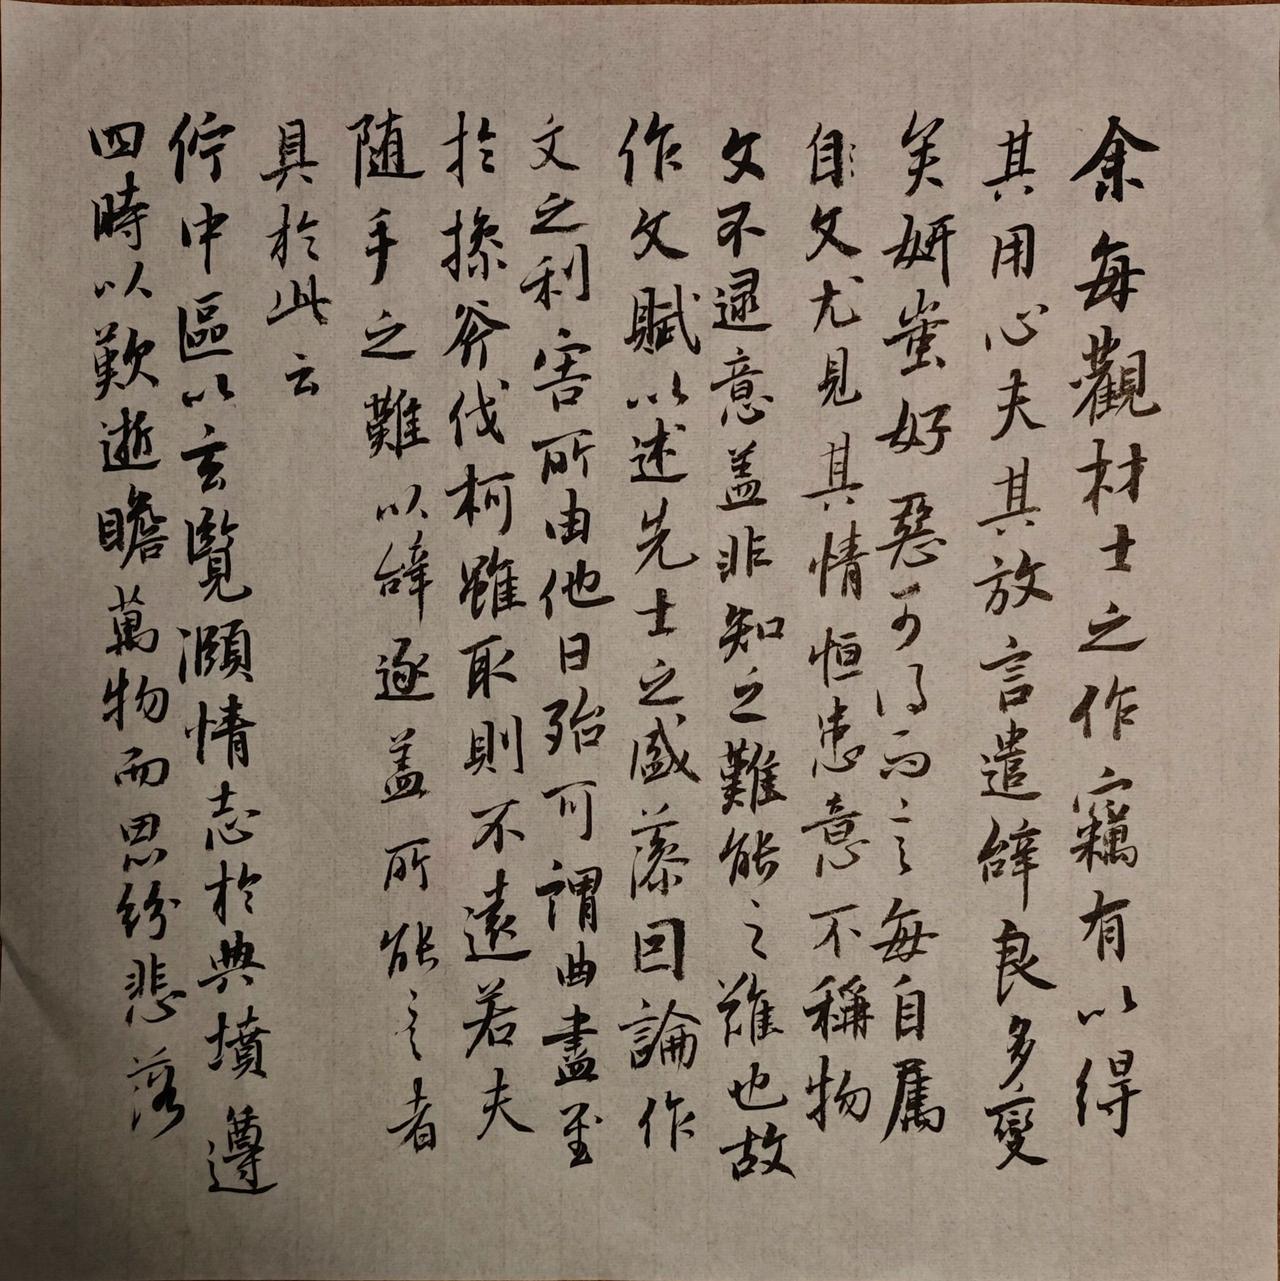 余每觀材士之作竊有以得
其用心夫其放言遣辭良多變
矣妍蚩好惡可得而言每自属
自文尤見其情恒患意不稱物
文不逮意盖非知之難能之難也故
作文賦以述先士之盛藻因論作
文之利害所由他日殆可謂曲盡至
於操斧伐柯雖取則不遠若夫
随手之難以辭逐盖所能言者
具於此云
佇中區以玄覽頤情志於典墳遵
四時以歎逝瞻萬物而思紛悲落